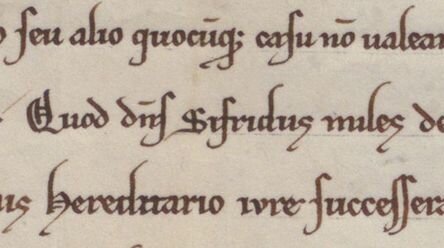 seu alio quocūqꝫ casu nō ualea
Quod dn̄s Sifridus miles de
hereditario iure successer